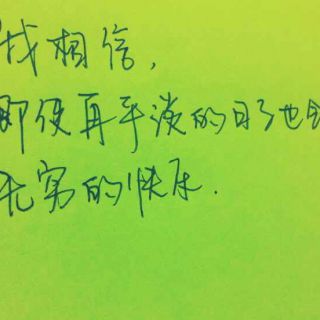 我相信，
即使再平淡的日子也会
无穷的快乐.